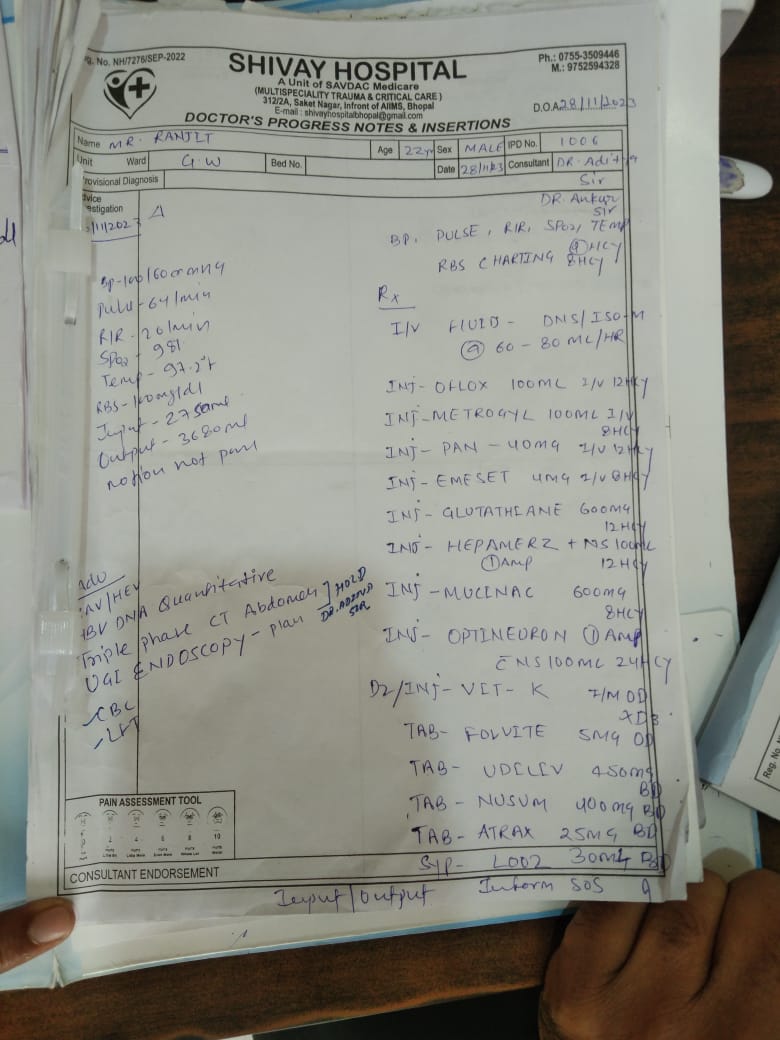 g. No. NH/7276/SEP-2022
SHIVAY HOSPITAL
A Unit of SAVDAC Medicare
(MULTISPECIALITY TRAUMA & CRITICAL CARE)
312/2A, Saket Nagar, Infront of AIIMS, Bhopal
E-mail : shivayhospitalbhopal@gmail.com
Ph.: 0755-3509446
M.: 9752594328
D.O.A 28/11/2023
DOCTOR'S PROGRESS NOTES & INSERTIONS
Name MR. RANJIT Age 22yr Sex MALE IPD No. 1006
Unit Ward G.W Bed No. Date 28/11/23 Consultant DR. Aditya
Provisional Diagnosis Sir
DR. Ankur
Sir
/11/2023
BP-100/60mmHg
Pulse-64/min
R/R-20/min
SPO2-98%
Temp-97.2°f
RBS-100mg/dl
Input-2750ml
Output-3680ml
motion not pass
Adv
HAV/HEV
HBV DNA Quantitative
Triple phase CT Abdomen HOLD
UGI ENDOSCOPY-plan
SIR
CBC
LFT
BP, PULSE, R/R, SPO2, TEMP
HLY
RBS CHARTING 8HLY
Rx
I/V FLUID - DNS/ISO-M
@ 60-80 ML/HR
INJ-OFLOX 100ML I/V 12HLY
INJ-METROGYL 100ML I/V
8HLY
INJ-PAN-40MG I/V 12HLY
INJ-EMESET 4MG I/V 8HLY
INJ-GLUTATHIANE 600MG
12HLY
INJ-HEPAMERZ + NS 100ML
1 AMP 12HLY
INJ-MUCINAC 600MG
8HLY
INJ-OPTINEURON 1 AMP
c̄ NS 100ML 24HLY
D2/INJ-VIT-K I/M OD
XD3
TAB-FOLVITE 5MG OD
TAB-UDILIV 450MG
BD
TAB-NUSUM 400MG BD
TAB-ATRAX 25MG BD
Syp-LOOZ 30ML BD
PAIN ASSESSMENT TOOL
2 4 6 8 10
CONSULTANT ENDORSEMENT
Input/Output Inform SOS
Reg. No.